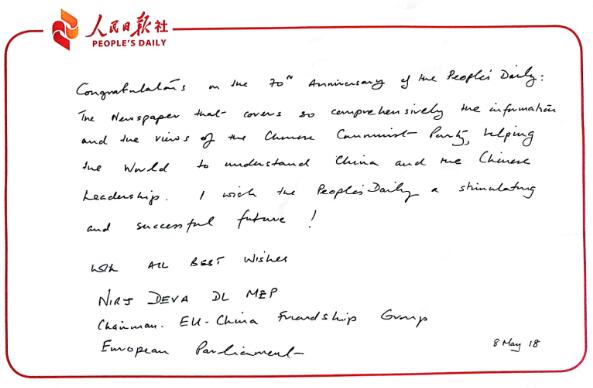 人民日报社
PEOPLE'S DAILY
Congratulations on the 70th Anniversary of the People's Daily:
The Newspaper that covers so comprehensively the information
and the views of the Chinese Communist Party, helping
the World to understand China and the Chinese
Leadership. I wish the People's Daily a stimulating
and successful future!
With ALL BEST Wishes
NIRJ DEVA DL MEP
Chairman. EU-China Friendship Group
European Parliament
8 May 18